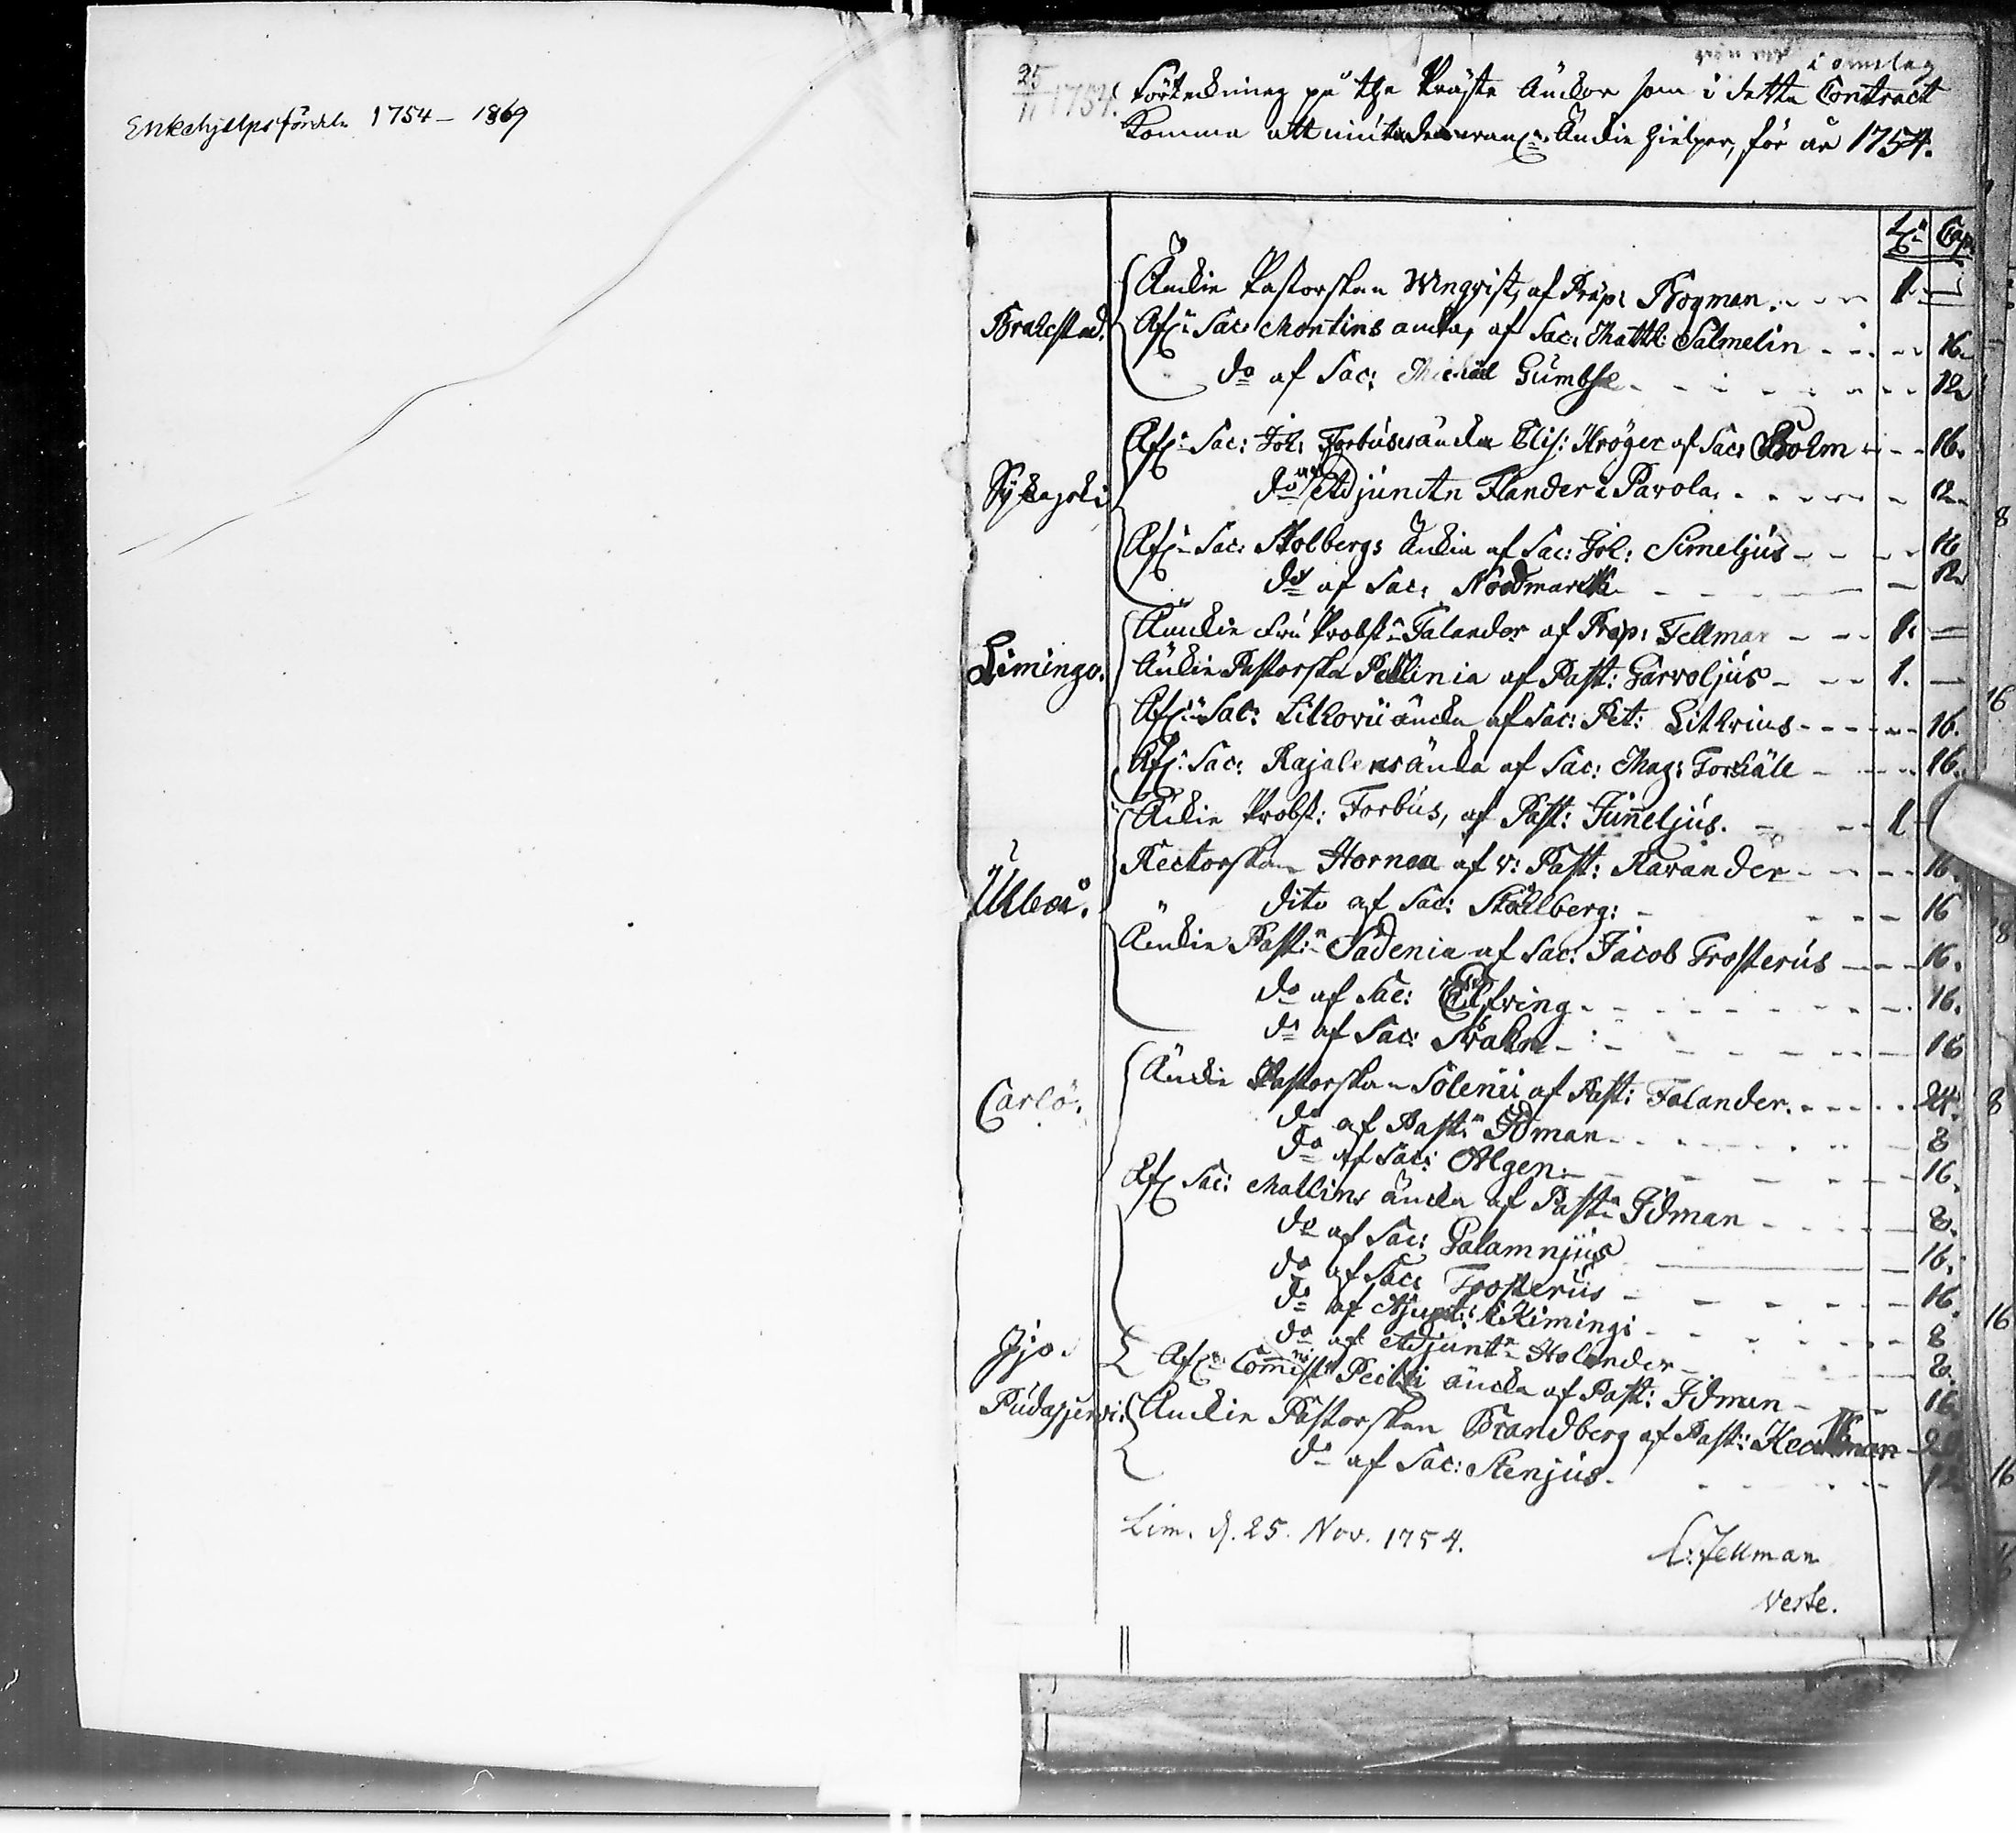 Enkehjelpsfördeln 1754–1869
i omslag
25/11 1754.
Förtekning på the Präste Änckor som i detta Contract
komma att niuta Änckie Hielper, för år 1754.
Cap
Brahestad.
Änckie Pastorskan Ungqvist, af Præp: Frogman. 1. —
Afl: Sac: Montins ancka, af Sac: Matth: Salmelin 16.
do af Sac: Michäel 12
Sijkajocki
Afl: Sac: Joh: Forbuses äncka Elis: Kröger af Sac: Holm 16.
do af Adjuncten Flander i Pavola. 12
Afl: Sac: Stolbergs änckia af Sac: Joh: Simeljus 16
do af Sac: Nordmarck 12
Limingo.
Änckie Fru Probst: Falander af Præp: Fellman 1. —
Änckie Pastorska Pellinia af Past: Garvoljus 1. —
Afl: Sac: Lithovii äncka af Sac: Pet: Lithovius 16.
Afl: Sac: Rajalenes äncka af Sac: Mag: Forsäll 16.
Uhleå.
Änckie Probst: Forbus, af Past: Junneljus. 1
Rectorskan Hornea af v: Past: Ravander 16.
dito af Sac: Ståhlberg: 16
Änckie Past:n Sadenia af Sac: Jacob Frosterus 16.
do af Sac: Elfving 16.
do af Sac: Krahn 16
Carlö.
Änckie Pastorskan Solenii af Past: Falander. 24.
do af Past:n Idman 8
do af Sac: Algen. 16.
Afl Sac: Mallins äncka af Past:n Idman 8.
do af Sac: Galamnjus 16.
do af Sac: Frosterus 16.
do af Adjunct: i Kimingi 8
do af Adjunct:n Holander 8.
Ijo.
Afl: Commist:n Peitzi äncka af Past: Idman 16.
Pudasjervi.
Änckie Pastorskan Brandberg af Past: Keckman 20
do af Sac: Stenjus. 12
Lim. d. 25. Nov. 1754.
C: Fellman
Verte.